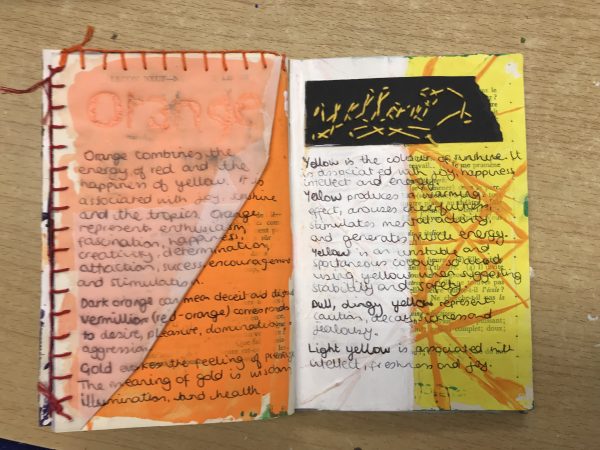 Orange
Orange combines the
energy of red and the
happiness of yellow. It is
associated with joy, sunshine
and the tropics. Orange
represents enthusiasm,
fascination, happiness,
creativity, determination,
attraction, success, encouragement
and stimulation.
Dark orange can mean deceit and
vermillion (red-orange) corresponds
to desire, pleasure,
aggression
Gold evokes the feeling of
The meaning of gold is wisdom,
illumination, and health
Yellow is the colour of sunshine. It
is associated with joy, happiness
intellect and energy.
Yellow produces a warming
effect, arouses cheerfulness,
stimulates mental activity,
and generates muscle energy.
Yellow is an unstable and
spontaneous colour, so avoid
using yellow when suggesting
stability and safety.
Dull, dingy yellow represent
caution, decay, sickness and
jealousy.
Light yellow is associated with
intellect, freshness and joy.